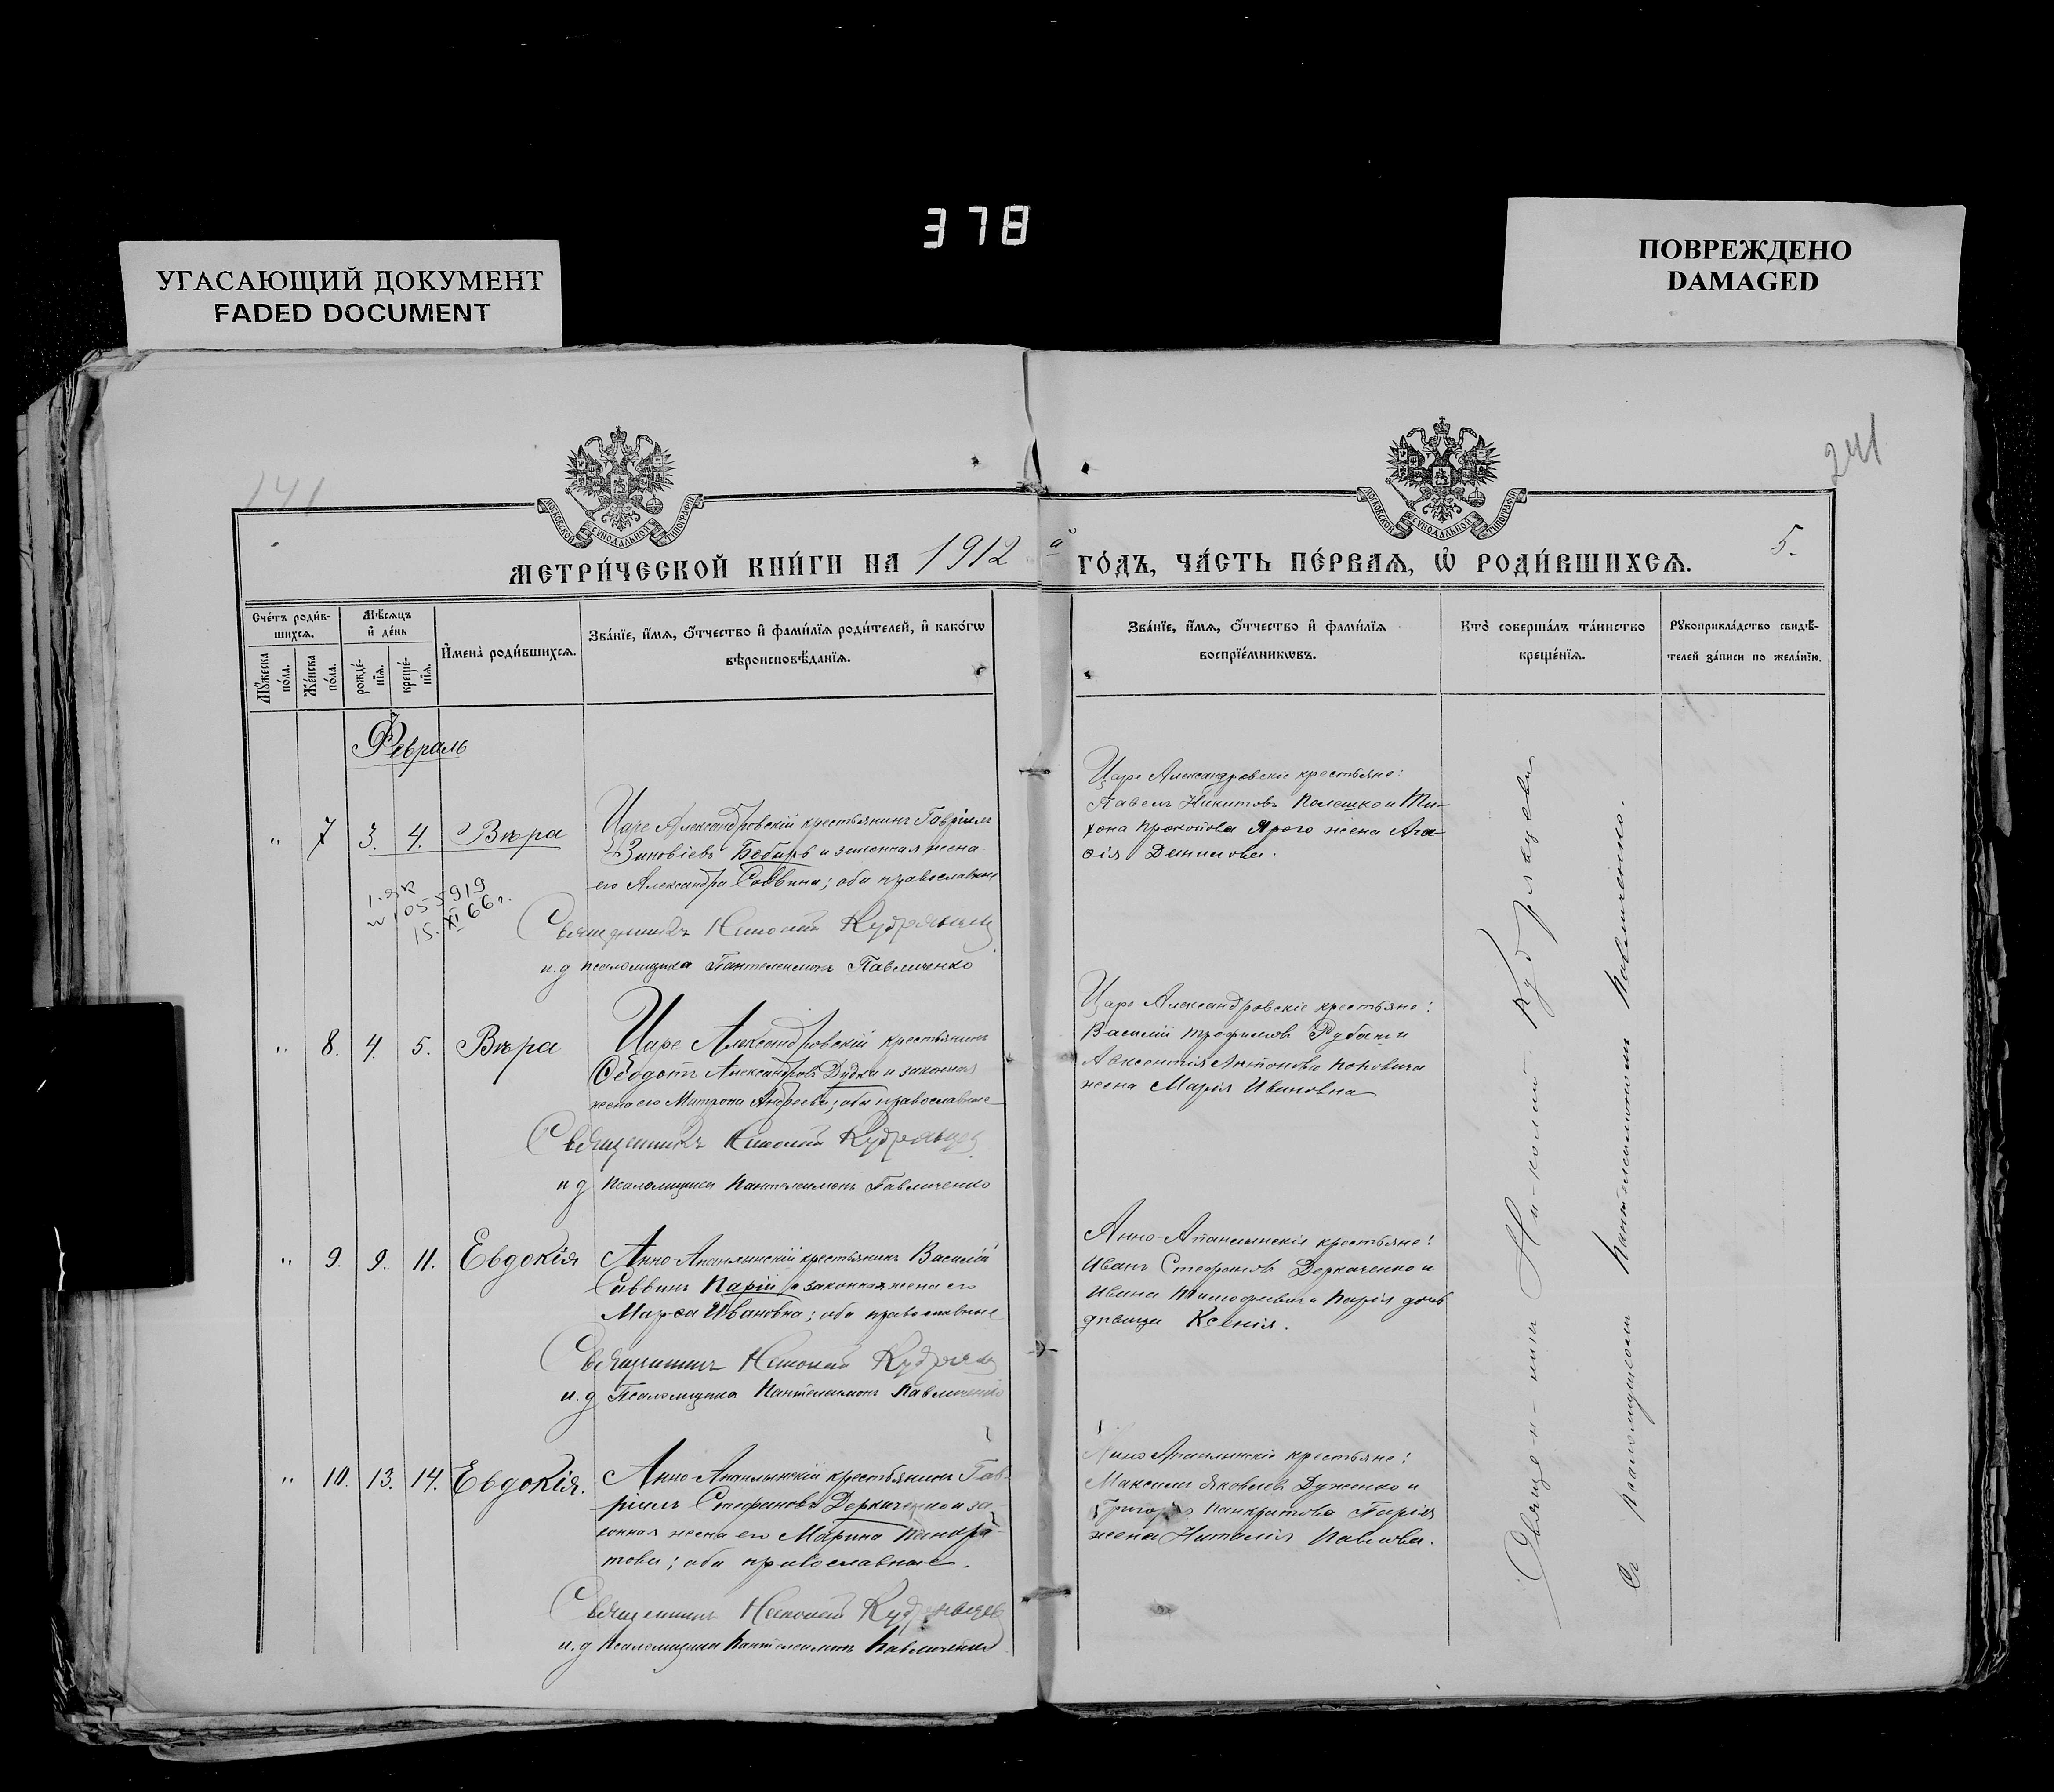 378
УГАСАЮЩИЙ ДОКУМЕНТ
FADED DOCUMENT
ПОВРЕЖДЕНО
DAMAGED
141
241
МОСКОВСКОЙ СѴНОДАЛЬНОЙ ТИПОГРАФІИ
МОСКОВСКОЙ СѴНОДАЛЬНОЙ ТИПОГРАФІИ
МЕТРИ́ЧЕСКОЙ КНИ́ГИ НА 1912 й ГО́ДЪ, ЧА́СТЬ ПЕ́РВАѦ, Ѽ РОДИ́ВШИХСѦ.
5.
Сче́тъ роди́в-
шихсѧ.
Мꙋ́жеска
по́ла.
Же́нска
по́ла.
Мѣ́сѧцъ
и҆ де́нь
рожде́-
нїѧ.
креще́-
нїѧ.
И҆мена̀ роди́вшихсѧ.
Зва́нїе, и҆́мѧ, ѻ҆́тчество и҆ фами́лїѧ роди́телей, и҆ како́гѡ
вѣроисповѣ́данїѧ.
Зва́нїе, и҆́мѧ, ѻ҆́тчество и҆ фами́лїѧ
воспрїе́мникѡвъ.
Кто̀ соверша́лъ та́инство
креще́нїѧ.
Рꙋкоприкла́дство свидѣ́-
телей за́писи по жела́нїю.
Февраль
" 7 3. 4. Вѣра
Царе Александровскій крестьянинъ Гавріилъ
Зиновіевъ Бебырь и законная жена
его Александра Саввина; оба православные
055919
15.XI 66 г.
Священникъ Николай Кудрявцев
и.д псаломщика Пантелеимонъ Павличенко
Царе Александровскіе крестьяне:
Павелъ Никитовъ Колешко и Ти-
хона Прокопова Ярого жена Ага-
ѳія Данилова.
" 8. 4. 5. Вѣра
Царе Александровскій крестьянинъ
Ѳеодотъ Александровъ Дудка и законная
жена его Матрона Андреева; оба православные
Священникъ Николай Кудрявцев
и д Псаломщика Пантелеимонъ Павличенко
Царе Александровскіе крестьяне:
Василій Трофимовъ Рубанъ и
Авксентія Антонова Поповича
жена Марія Ивановна
" 9. 9. 11. Евдокія
Анно-Апанлынскій крестьянинъ Василій
Саввинъ Парій и законная жена его
Марѳа Ивановна; оба православные
Священникъ Николай Кудрявцев
и.д Псаломщика Пантелеимонъ Павличенко
Анно-Апанлынскіе крестьяне:
Иванъ Стефановъ Деркаченко и
Ивана Тимофеевича Парія дочь
дѣвица Ксенія.
" 10. 13. 14. Евдокія.
Анно-Апанлынскій крестьянинъ Гав-
ріилъ Стефановъ Деркаченко и за-
конная жена его Марина Панкра-
това; оба православные.
Священникъ Николай Кудрявцев
и.д Псаломщика Пантелеимонъ Павличенко
Анно Апанлынскіе крестьяне:
Максимъ Яковлевъ Дуженко и
Григорія Панкратова Парія
жена Наталія Павлова.
Священникъ Николай Кудрявцевъ
съ псаломщикомъ Пантелеимономъ Павличенко.